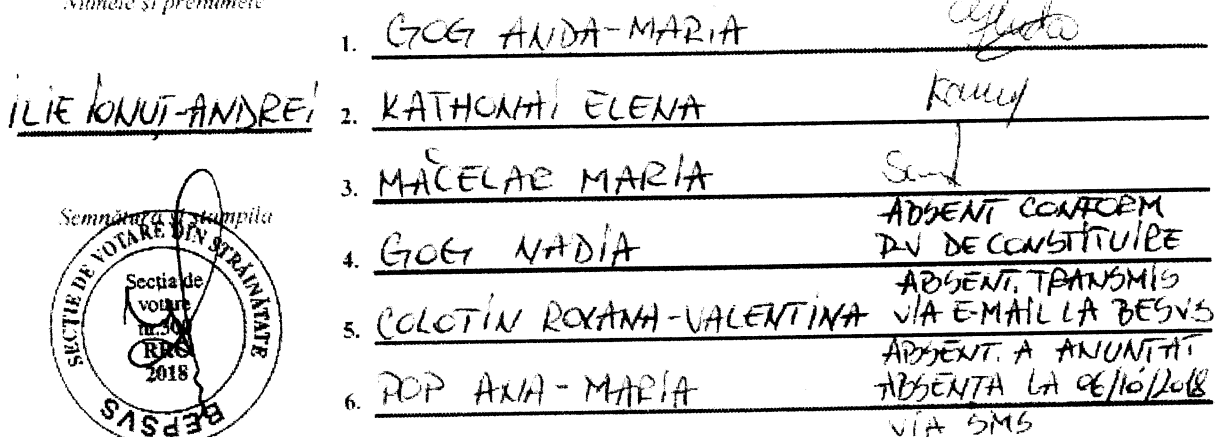 Numele și prenumele
ILIE IONUȚ-ANDREI
Semnătura și stampila
SECTIE DE VOTARE DIN STRĂINĂTATE
Sectia de
votare
RRO
2018
BEPSVS
1. GOG ANDA-MARIA
2. KATHONAI ELENA
3. MĂCELAR MARIA
4. GOG NADIA
ABSENT CONFORM
PV DE CONSTITUIRE
5. COLOTIN ROXANA-VALENTINA
ABSENT. TRANSMIS
VIA E-MAIL LA BESVS
6. POP ANA-MARIA
ABSENT. A ANUNTAT
ABSENTA LA 06/10/2018
VIA SMS